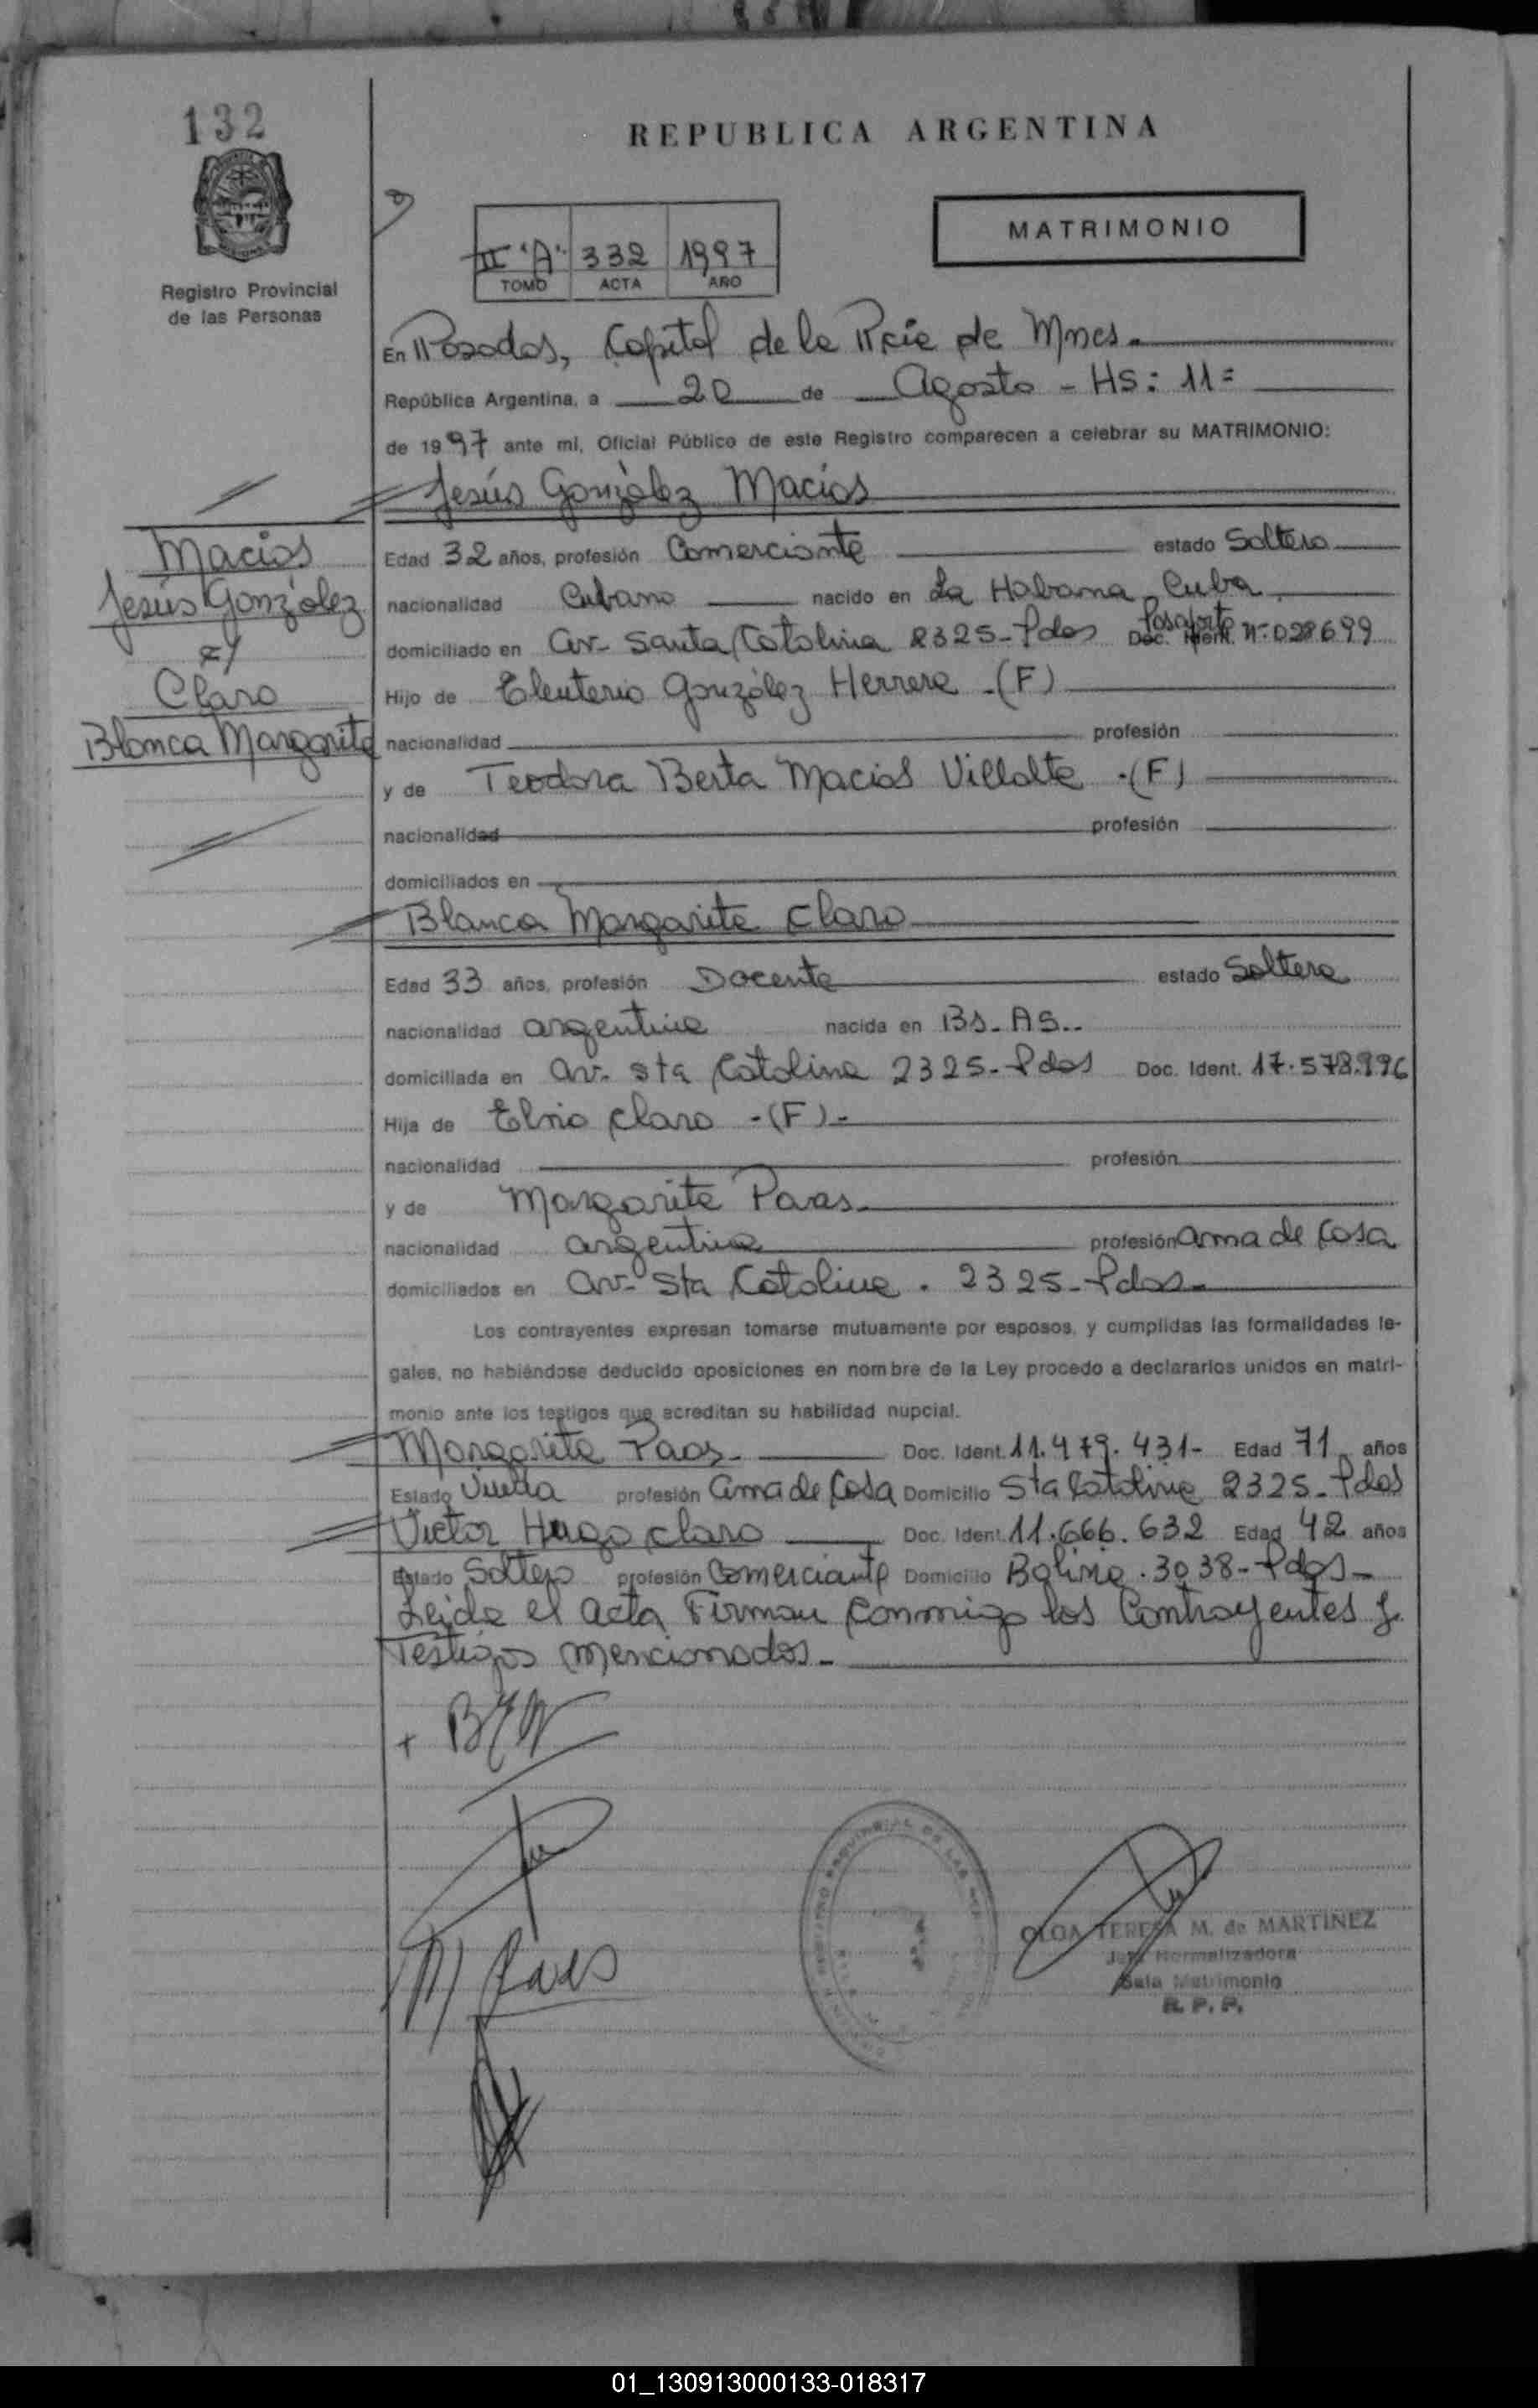 132
REPUBLICA ARGENTINA
MATRIMONIO
II "A" 332 1997
TOMO ACTA AÑO
Registro Provincial
de las Personas
En Posadas, Capital de la Pcia de Mnes.
República Argentina, a 20 de Agosto - HS: 11=
de 1997 ante mi, Oficial Público de este Registro comparecen a celebrar su MATRIMONIO:
Jesús González Macías
Macias
Jesús González
y
Claro
Blanca Margarita
Edad 32 años, profesión Comerciante estado Soltero
nacionalidad Cubano nacido en La Habana, Cuba.
domiciliado en Av. Santa Catalina 2325-Pdas Pasaporte Doc. Ident. Nº 028699
Hijo de Eleuterio González Herrera -(F)
nacionalidad profesión
y de Teodora Berta Macias Villalte -(F)
nacionalidad profesión
domiciliados en
Blanca Margarita Claro
Edad 33 años, profesión Docente estado Soltera
nacionalidad argentina nacida en Bs. As.
domiciliada en Av. Sta Catalina 2325-Pdas Doc. Ident. 17.578.996
Hija de Elnio Claro -(F)-
nacionalidad profesión
y de Margarita Pavas
nacionalidad argentina profesión ama de casa
domiciliados en Av. Sta Catalina. 2325-Pdas
Los contrayentes expresan tomarse mutuamente por esposos, y cumplidas las formalidades le-
gales, no habiéndose deducido oposiciones en nombre de la Ley procedo a declararlos unidos en matri-
monio ante los testigos que acreditan su habilidad nupcial.
Margarita Paas Doc. Ident. 11.479.431- Edad 71 años
Estado Viuda profesión ama de casa Domicilio Sta Catalina 2325-Pdas
Victor Hugo Claro Doc. Ident. 11.666.632 Edad 42 años
Estado Soltero profesión Comerciante Domicilio Bolivia. 3038-Pdas-
Leída el acta Firman conmigo los Contrayentes y
Testigos mencionados.-
OLGA TERESA M. de MARTINEZ
Jefa Normalizadora
Sala Matrimonio
R. P. P.
01_130913000133-018317